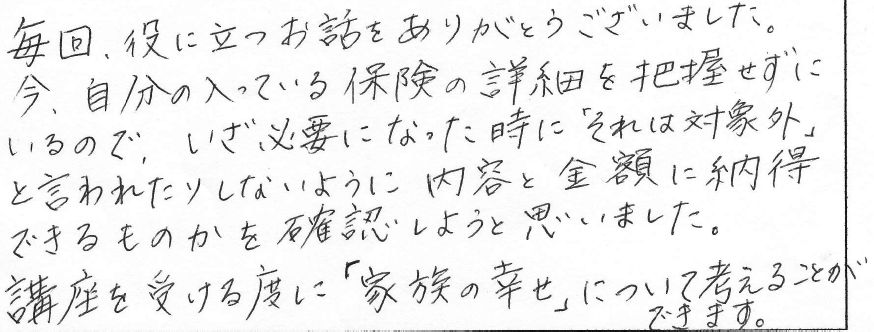 毎回、役に立つお話をありがとうございました。
今、自分の入っている保険の詳細を把握せずに
いるので、いざ必要になった時に「それは対象外」
と言われたりしないように内容と金額に納得
できるものかを確認しようと思いました。
講座を受ける度に「家族の幸せ」について考えることが
できます。